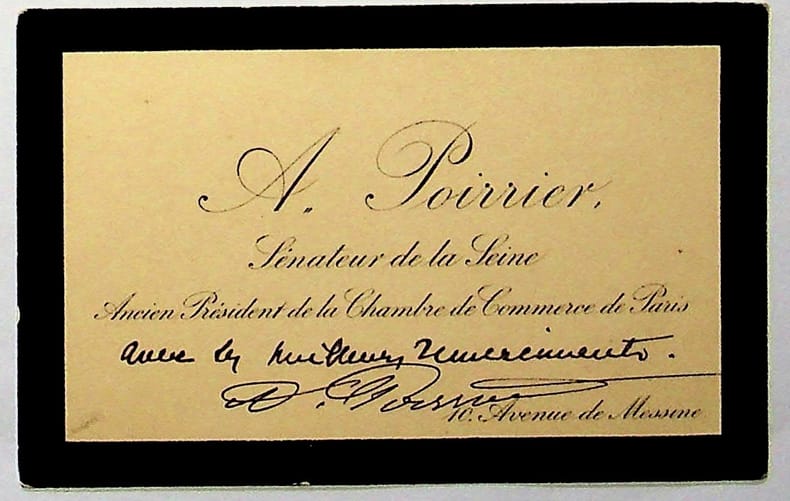 A. Poirrier.
Sénateur de la Seine
Ancien Président de la Chambre de Commerce de Paris
avec les meilleurs remerciements.
A. Poirrier
10. Avenue de Messine